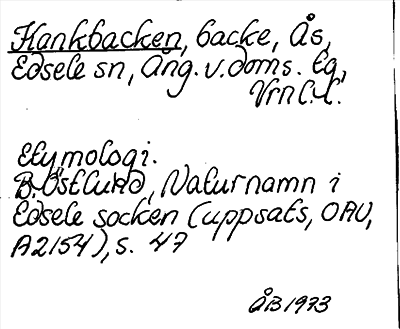 Hankbacken, backe, Ås,
Edsele sn, Ång. v. doms. lg,
Vrnl. L.
Etymologi.
B. Östlund, Naturnamn i
Edsele socken (uppsats, OAU,
A2154), s. 47
ÅB 1973